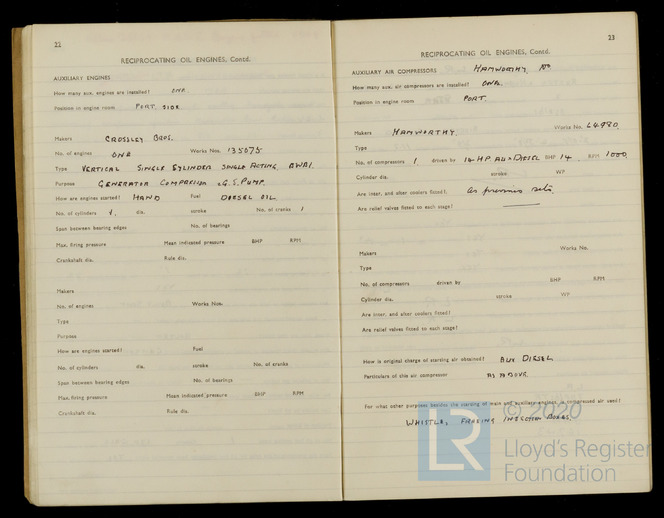 22
RECIPROCATING OIL ENGINES, Contd.
AUXILIARY ENGINES
How many aux. engines are installed? ONE
Position in engine room PORT SIDE
Makers CROSSLEY BROS.
No. of engines ONE Works Nos. 135075
Type VERTICAL SINGLE CYLINDER SINGLE ACTING,
Purpose GENERATOR COMPRESSOR & G.S. PUMP.
How are engines started? HAND Fuel DIESEL OIL
No. of cylinders 1. dia. stroke No. of cranks 1
Span between bearing edges No. of bearings
Max. firing pressure Mean indicated pressure BHP RPM
Crankshaft dia. Rule dia.
Makers
No. of engines Works Nos.
Type
Purpose
How are engines started? Fuel
No. of cylinders dia. stroke No. of cranks
Span between bearing edges No. of bearings
Max. firing pressure Mean indicated pressure BHP RPM
Crankshaft dia. Rule dia.
23
RECIPROCATING OIL ENGINES, Contd.
AUXILIARY AIR COMPRESSORS HAMWORTHY, No
How many aux. air compressors are installed? ONE.
Position in engine room PORT.
Makers HAMWORTHY. Works No.
Type
No. of compressors 1 driven by 14 HP AUX DIESEL BHP 14 RPM 1000
Cylinder dia. stroke WP
Are inter. and after coolers fitted? as previous sets.
Are relief valves fitted to each stage?
Makers Works No.
Type
No. of compressors driven by BHP RPM
Cylinder dia. stroke WP
Are inter. and after coolers fitted?
Are relief valves fitted to each stage?
How is original charge of starting air obtained? AUX DIESEL
Particulars of this air compressor AS ABOVE
For what other purposes besides the starting of main and auxiliary engines is compressed air used?
WHISTLE, FREEING INJECTION BOXES.
LR © 2020
Lloyd's Register
Foundation